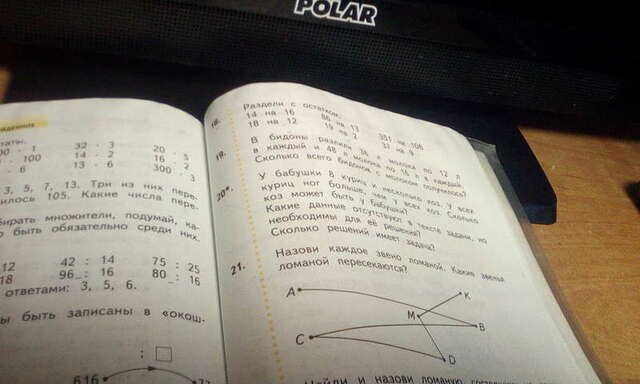 POLAR
ведение
таты.
00 · 1
32 · 3
20 · 5
· 100
14 · 2
16 · 5
· 6
13 · 6
300 · 3
3, 5, 7, 13. Три из них пере
илось 105. Какие числа пере-
бирать множители, подумай, ка-
о быть обязательно среди них.
12
42 : 14
75 : 25
18
96 : 16
80 : 16
ответами: 3, 5, 6.
ы быть записаны в «окош-
:
616
18.
Раздели с остатком.
14 на 16
86 на 13
351 на 106
18 на 12
19 на 2
31 на 9
19.
В бидоны разлили 36 л молока по 12 л
в каждый и 48 л молока по 16 л в каждый.
Сколько всего бидонов с молоком получилось?
20*.
У бабушки 8 куриц и несколько коз. У всех
куриц ног больше, чем у всех коз. Сколько
коз может быть у бабушки?
Какие данные отсутствуют в тексте задачи, но
необходимы для её решения?
Сколько решений имеет задача?
21.
Назови каждое звено ломаной. Какие звенья
ломаной пересекаются?
A
K
M
B
C
D
Найди и назови ломаную,